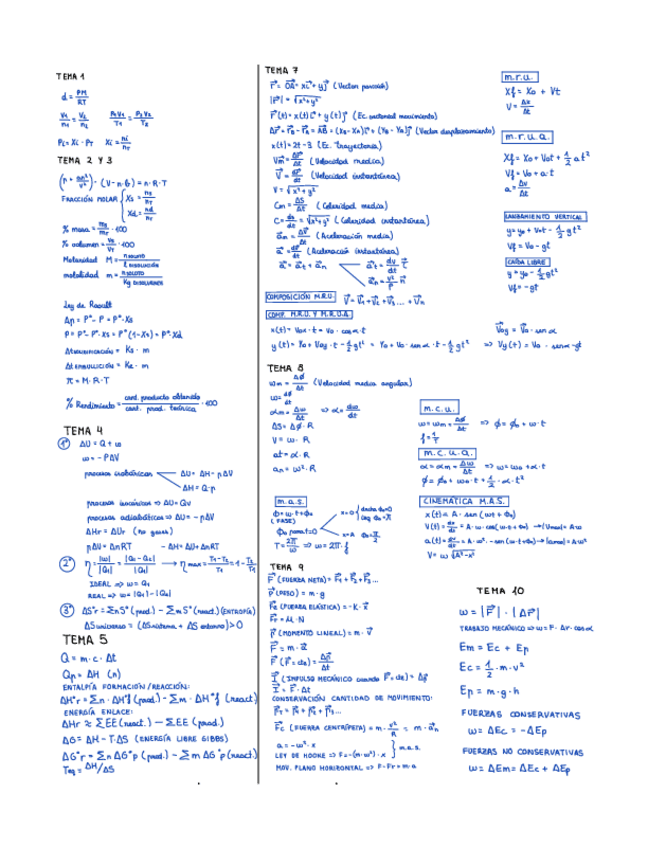 TEMA 1
d = PM/RT
V₁/n₁ = V₂/n₂   P₁V₁/T₁ = P₂V₂/T₂
Pi = Xi · PT   Xi = ni/nT
TEMA 2 Y 3
(P + an²/V²) · (V - n·b) = n·R·T
FRACCIÓN MOLAR { Xs = ns/nT
Xd = nd/nT
% masa = ms/mT · 100
% volumen = Vs/VT · 100
Molaridad M = n SOLUTO / l DISOLUCIÓN
molalidad m = n SOLUTO / Kg DISOLVENTE
Ley de Raoult
Δp = P° - P = P°·Xs
P = P° - P°·Xs = P°(1-Xs) = P°·Xd
Kc · m
Δt EBULLICIÓN = Ke · m
π = M·R·T
% Rendimiento = cant. producto obtenido / cant. prod. teórica · 100
TEMA 4
1º ΔU = Q + w
w = - PΔV
procesos isobáricos
ΔU = ΔH - pΔV
ΔH = Qp
procesos isocóricos => ΔU = Qv
procesos adiabáticos => ΔU = - pΔV
ΔHr = ΔUr (no gases)
pΔV = ΔnRT   - ΔH = ΔU + ΔnRT
2º η = |w|/|Q₁| = |Q₁-Q₂|/|Q₁| → η max = T₁-T₂/T₁ = 1 - T₂/T₁
IDEAL => w = Q₁
REAL => w = |Q₁| - |Q₂|
3º ΔS°r = ΣnS°(prod.) - ΣmS°(react.) (ENTROPÍA)
ΔS universo = (ΔS sistema + ΔS entorno) > 0
TEMA 5
Q = m · c · Δt
Qp = ΔH (n)
ENTALPÍA FORMACIÓN/REACCIÓN:
ΔH°r = Σn · ΔH°f (prod.) - Σm · ΔH°f (react)
ENERGÍA ENLACE:
ΔHr ≈ ΣEE (react.) - ΣEE (prod.)
ΔG = ΔH - T·ΔS (ENERGÍA LIBRE GIBBS)
ΔG°r = ΣnΔG°p (prod.) - ΣmΔG°p (react)
Teq = ΔH/ΔS
TEMA 7
r⃗ = OA⃗ = xi⃗ + yj⃗ (Vector posición)
|r⃗| = √x²+y²
r⃗(t) = x(t)i⃗ + y(t)j⃗ (Ec. vectorial movimiento)
Δr⃗ = r⃗B - r⃗A = AB⃗ = (XB - XA)i⃗ + (YB - YA)j⃗ (Vector desplazamiento)
x(t) = 2t - 3 (Ec. trayectoria)
Vm⃗ = Δr⃗/Δt (Velocidad media)
V⃗ = dr⃗/dt (Velocidad instantánea)
V = √x²+y²
Cm = ΔS/Δt (Celeridad media)
C = ds/dt = √x²+y² (Celeridad instantánea)
a⃗m = ΔV⃗/Δt (Aceleración media)
a⃗ = dv⃗/dt (Aceleración instantánea)
a⃗ = a⃗t + a⃗n
a⃗t = dv/dt τ⃗
a⃗n = v²/ρ n⃗
COMPOSICIÓN M.R.U. V⃗ = V⃗₁ + V⃗₂ + V⃗₃ ... + V⃗n
COMP. M.R.U. Y M.R.U.A.
x(t) = Vox·t = Vo · cosα·t
V⃗oy = V⃗o · senα
y(t) = Yo + Voy·t - 1/2 gt² = Yo + Vo·senα·t - 1/2 gt² => Vy(t) = Vo · senα - gt
m.r.u.
Xf = Xo + Vt
V = Δx/Δt
m.r.u.a.
Xf = Xo + Vot + 1/2 at²
Vf = Vo + a·t
a = Δv/Δt
LANZAMIENTO VERTICAL
y = yo + Vot - 1/2 gt²
Vf = Vo - gt
CAÍDA LIBRE
y = yo - 1/2 gt²
Vf = - gt
TEMA 8
ωm = ΔΦ/Δt (Velocidad media angular)
ω = dΦ/dt
αm = Δω/Δt => α = dω/dt
ΔS = ΔΦ · R
V = ω · R
at = α · R
an = ω² · R
m.c.u.
ω = ωm = ΔΦ/Δt => Φ = Φo + ω·t
f = 1/T
m.c.u.a.
α = αm = Δω/Δt => ω = ωo + α·t
Φ = Φo + ωo·t + 1/2 · α·t²
m.a.s.
Φ = ω·t + Φo
(FASE)
Φo para t=0
x = A Φo = π/2
T = 2π/ω => ω = 2π·f
CINEMÁTICA M.A.S.
x(t) = A · sen(ωt + Φo)
V(t) = dx/dt = A · ω · cos(ω·t + Φo) → |Vmax| = Aω
a(t) = dv/dt = A·ω² · -sen(ω·t + Φo) → |amax| = Aω²
V = ω√A²-x²
TEMA 9
F⃗ (FUERZA NETA) = F⃗₁ + F⃗₂ + F⃗₃ ...
P⃗ (PESO) = m · g
F⃗e (FUERZA ELÁSTICA) = - K · x⃗
Fr = μ · N
p⃗ (MOMENTO LINEAL) = m · v⃗
F⃗ = m · a⃗
F⃗ (F⃗ = cte) = Δp⃗/Δt
I⃗ (IMPULSO MECÁNICO cuando F⃗ = cte) = Δp⃗
I⃗ = F⃗ · Δt
CONSERVACIÓN CANTIDAD DE MOVIMIENTO:
p⃗T = p⃗₁ + p⃗₂ + p⃗₃ ...
F⃗c (FUERZA CENTRÍPETA) = m · v²/R = m · a⃗n
a = - ω² · x
LEY DE HOOKE => F = -(m·ω²) · x } m.a.s.
MOV. PLANO HORIZONTAL => F - Fr = m·a
TEMA 10
ω = |F⃗| · |Δr⃗|
TRABAJO MECÁNICO => ω = F · Δr · cosα
Em = Ec + Ep
Ec = 1/2 · m · v²
Ep = m · g · h
FUERZAS CONSERVATIVAS
ω = ΔEc = - ΔEp
FUERZAS NO CONSERVATIVAS
ω = ΔEm = ΔEc + ΔEp